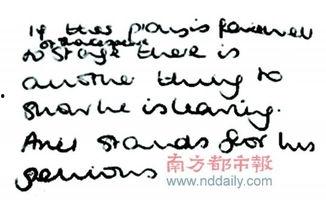 If this plan is farewell
or placement
to stage there is
another thing to
show he is leaving.
And stands for his
南方都市報
www.nddaily.com